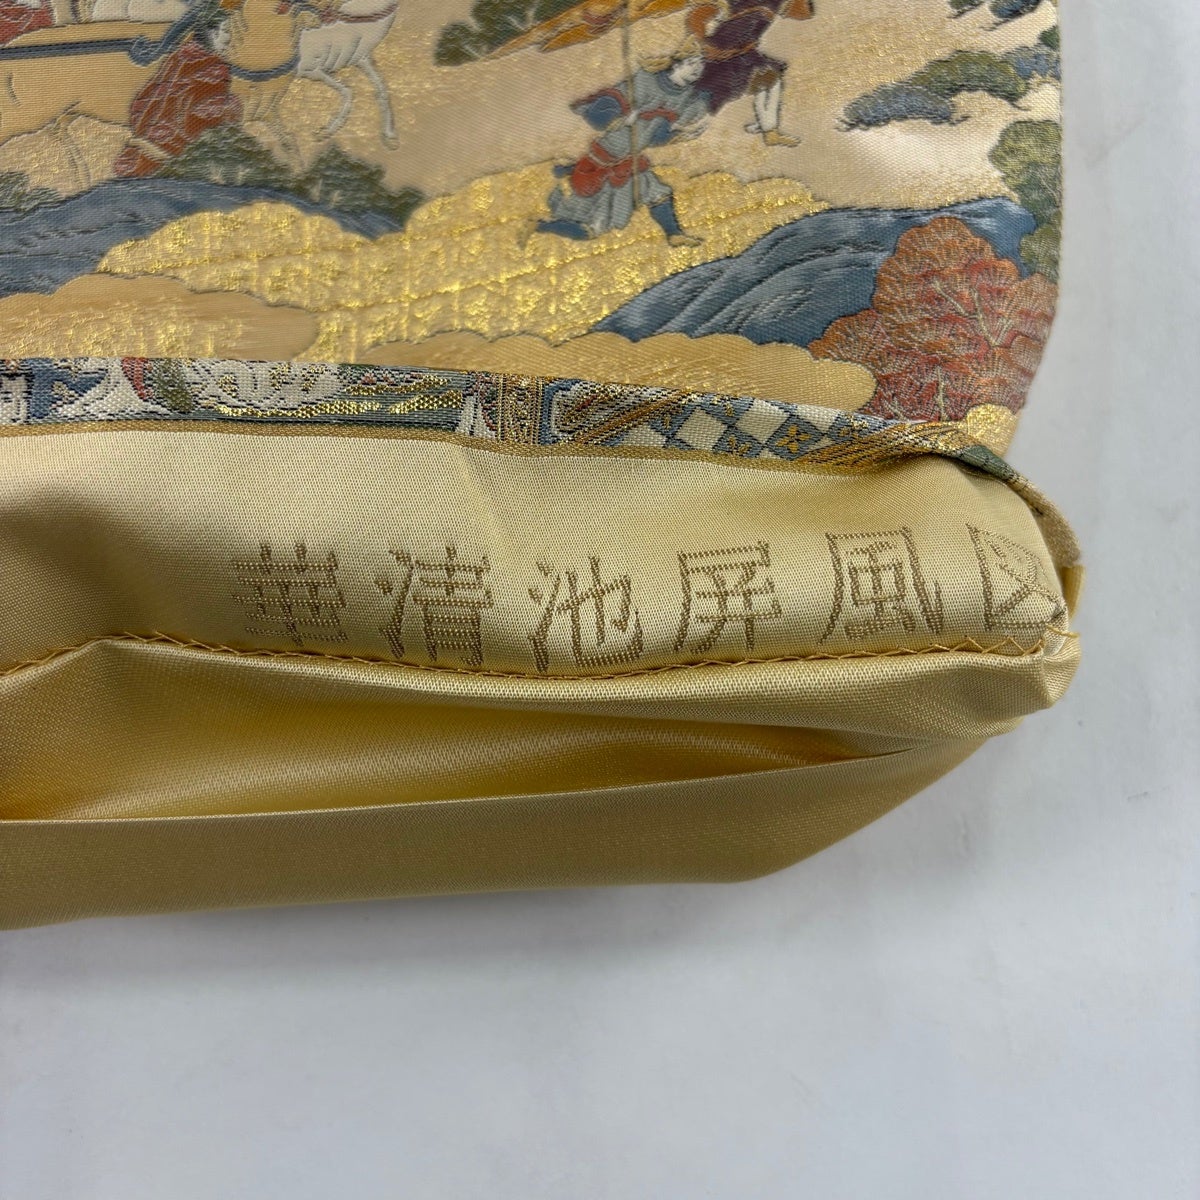 華清池屏風図